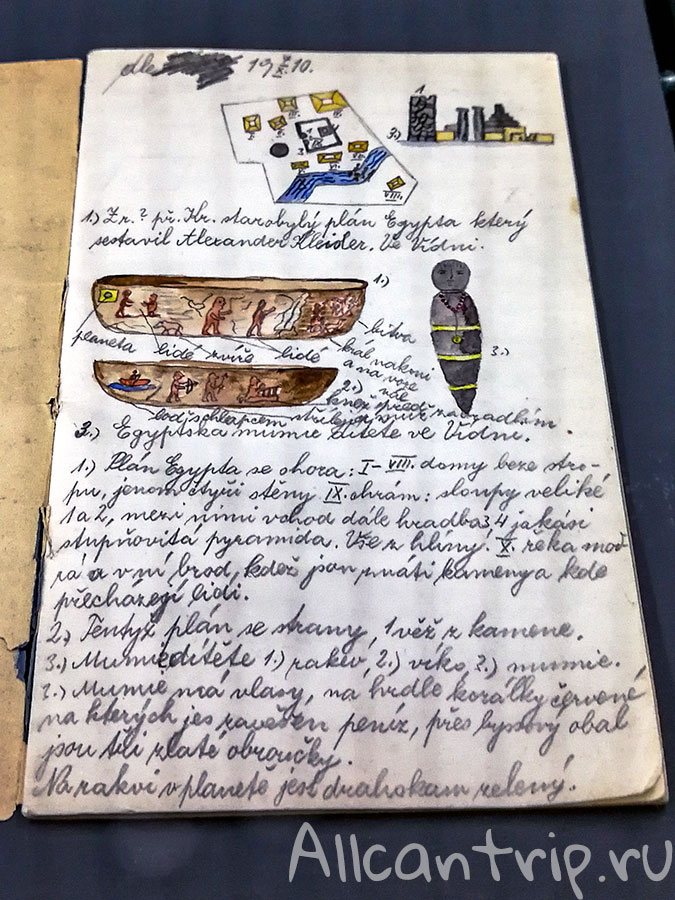 dle 19 X 10.
1
2.)
1.) Z r. ? př. Kr. starobylý plán Egypta který
sestavil Alexander Kleider. Ve Vídni.
1.)
planeta lidé zvíře lidé bitva
král na koni
a na voze
2.)
3.)
loď s chlapcem
3.) Egyptská mumie dítěte ve Vídni.
1.) Plán Egypta se shora: I-VIII. domy beze stro-
pu, jenom čtyři stěny IX. chrám: sloupy veliké
1 a 2, mezi nimi vchod dále hradba 3, 4 jakási
stupňovitá pyramida. Vše z hlíny. X. řeka mod-
rá a v ní brod, kdež jsou znáti kameny a kde
přecházejí lidi.
2.) Tentýž plán se strany, 1 věž z kamene.
3.) Mumie dítěte 1.) rakev, 2.) víko, 3.) mumie.
3.) Mumie má vlasy, na hrdle korálky červené
na kterých jes zavěšen peníz, přes byssový obal
jsou tři zlaté obroučky.
Na rakvi v planetě jest drahokam zelený.
Allcantrip.ru